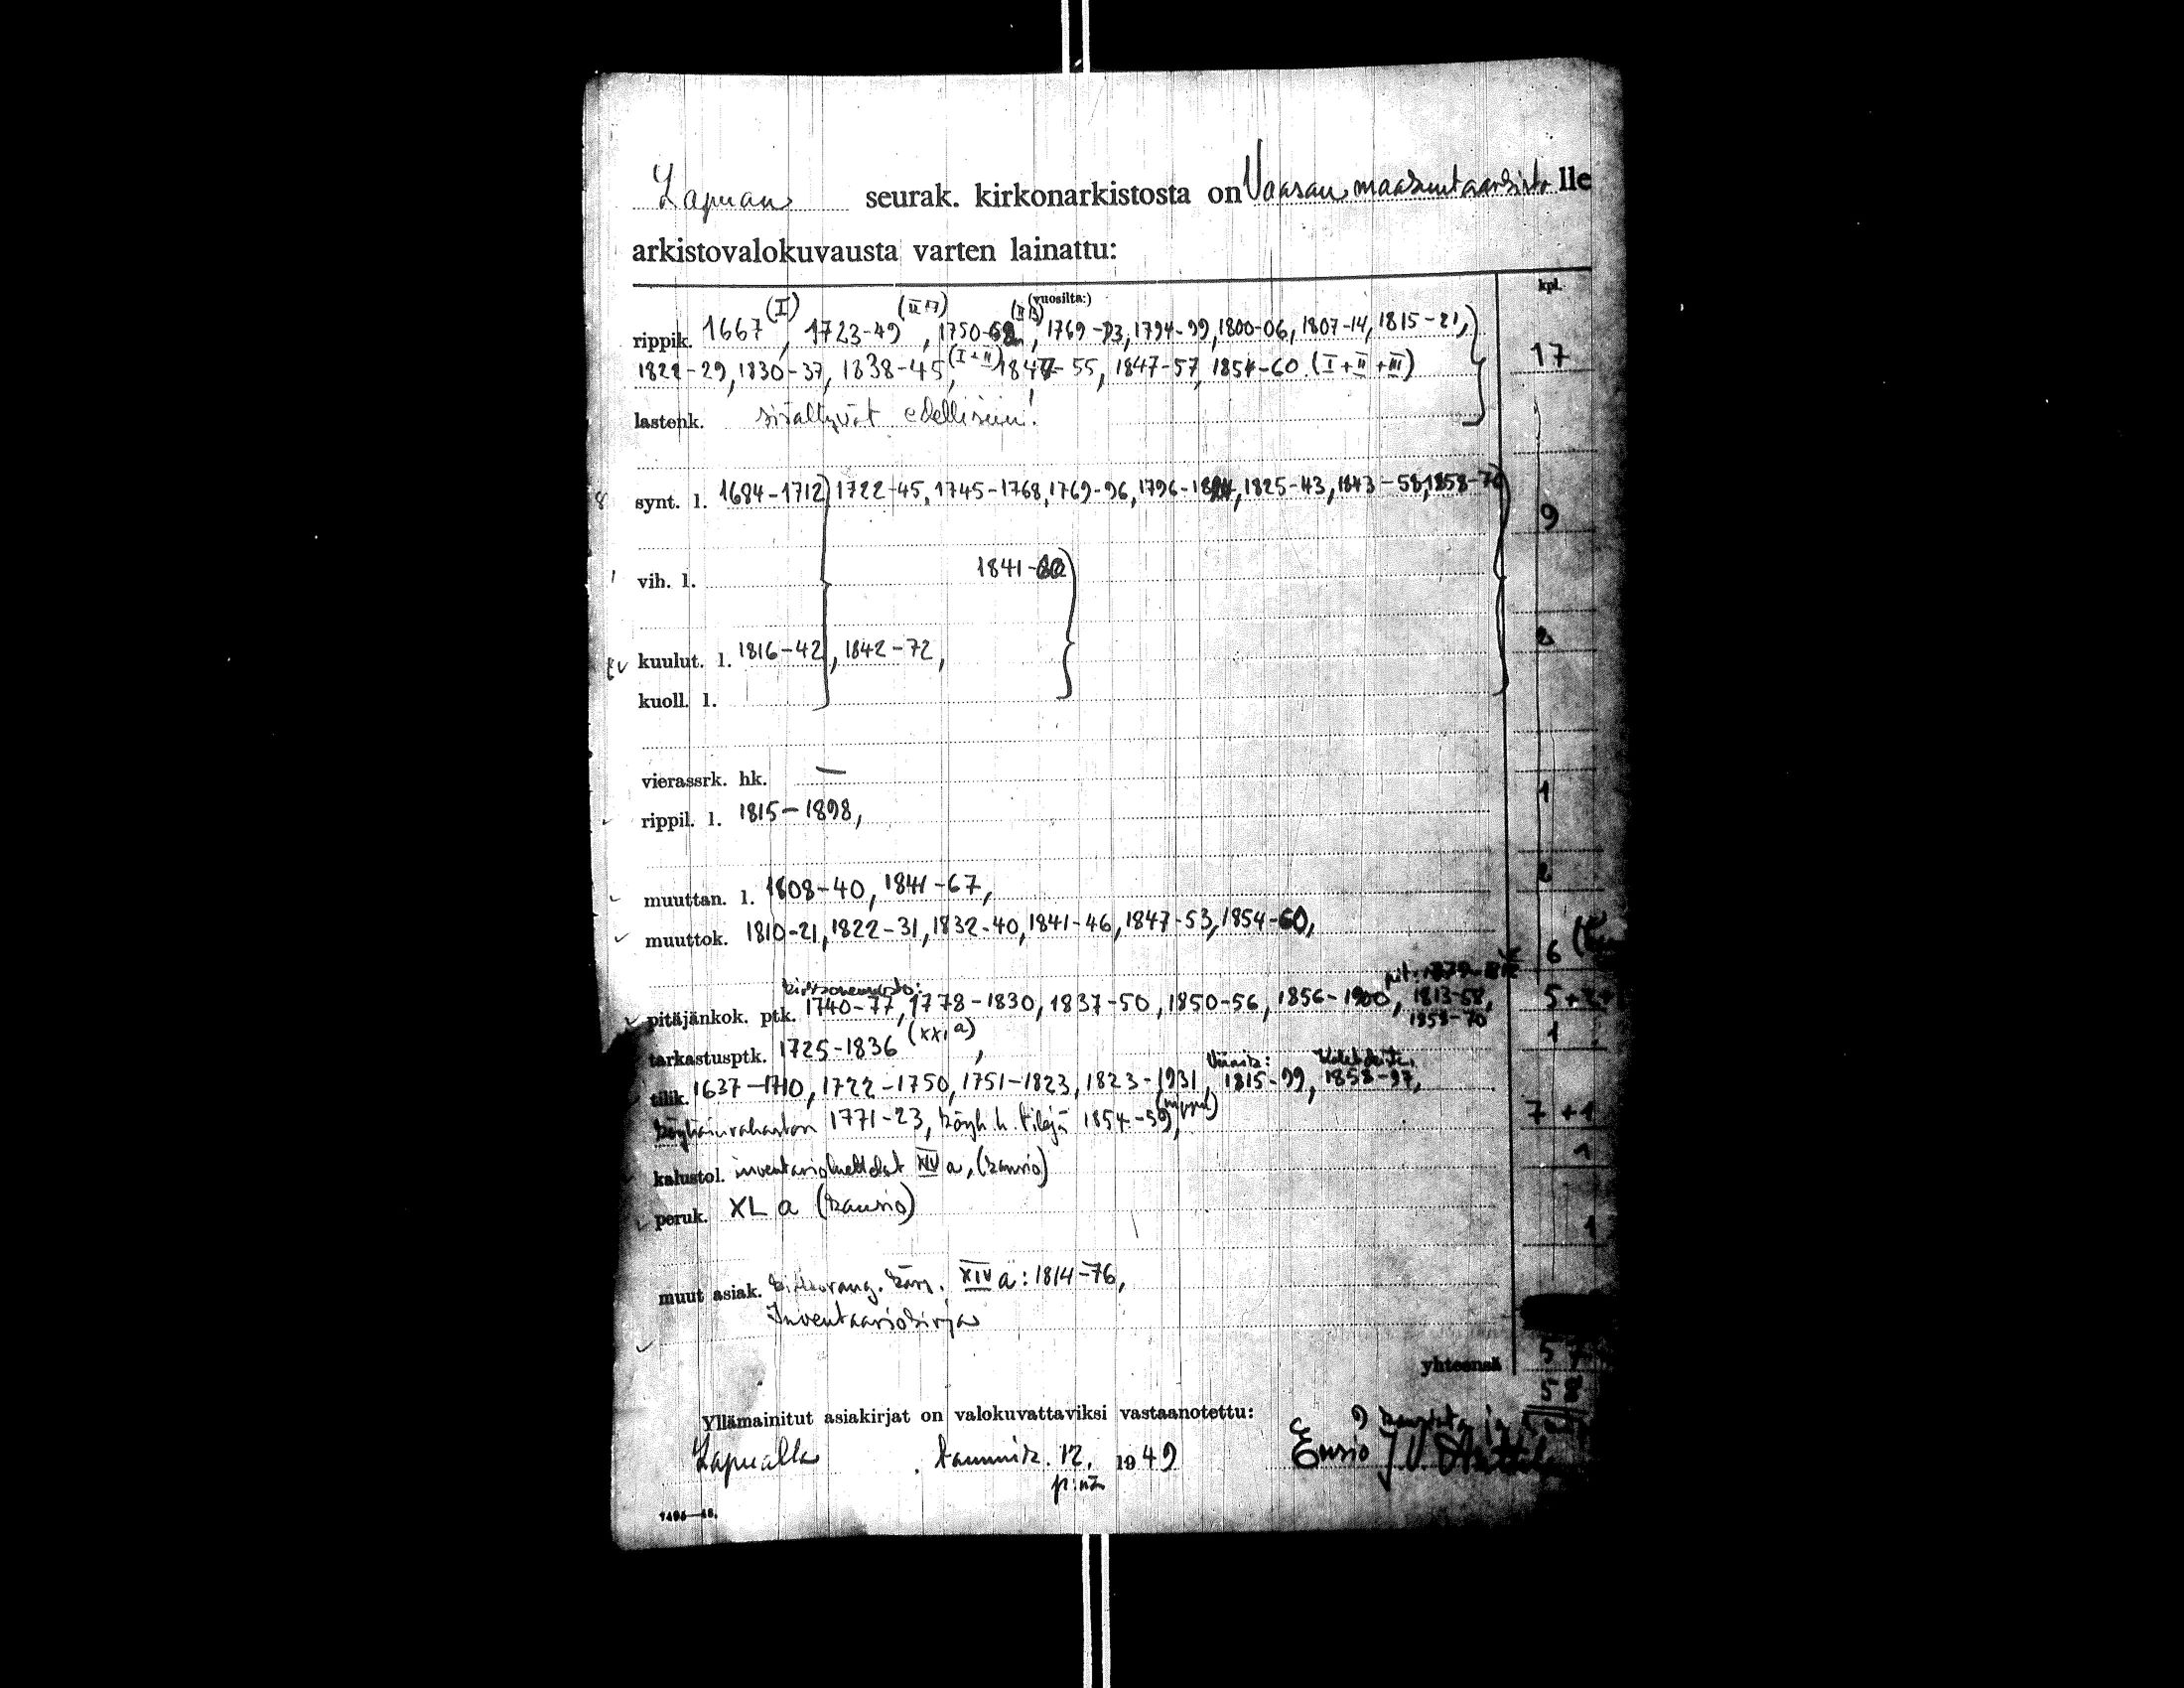 Lapuan seurak. kirkonarkistosta on Vaasan maakuntaarkistolle
arkistovalokuvausta varten lainattu:
(vuosilta:) kpl.
rippik. 1667 (I), 1723-49, 1750-68, 1769-93, 1794-99, 1800-06, 1807-14, 1815-21,
1822-29, 1830-37, 1838-45 (I+II), 55, 1847-57, 1854-60 (I+II+III) 17
lastenk. sisältyvät edellisiin!
8 synt. l. 1684-1712, 1722-45, 1745-1768, 1769-96, 1796- 1825-43, 1843-58, 1858-70 9
vih. l. 1841-
kuulut. l. 1816-42, 1842-72, 2
kuoll. l.
vierassrk. hk. —
rippil. l. 1815-1898, 1
muuttan. l. 1808-40, 1841-67, 2
muuttok. 1810-21, 1822-31, 1832-40, 1841-46, 1847-53, 1854-60, 6
pitäjänkok. ptk. 1740-77, 1778-1830, 1837-50, 1850-56, 1856-1900, 1813-58,
1858-70
tarkastusptk. 1725-1836 (XXI a), 1
tilik. 1637-1710, 1722-1750, 1751-1823, 1823-1931, 1815-99, 1858-97,
köyhäinrahaston 1771-23, köyh.h. tilejä 1854-59, 7+1
kalustol. inventarioluettelot XIV a, (kansio) 1
peruk. XL a (kansio) 1
muut asiak. XIV a: 1814-76,
Inventaariokirja
yhteensä 57
58
Yllämainitut asiakirjat on valokuvattaviksi vastaanotettu:
Lapualla, tammik. 12. 1949 Ensio J V
p:nä